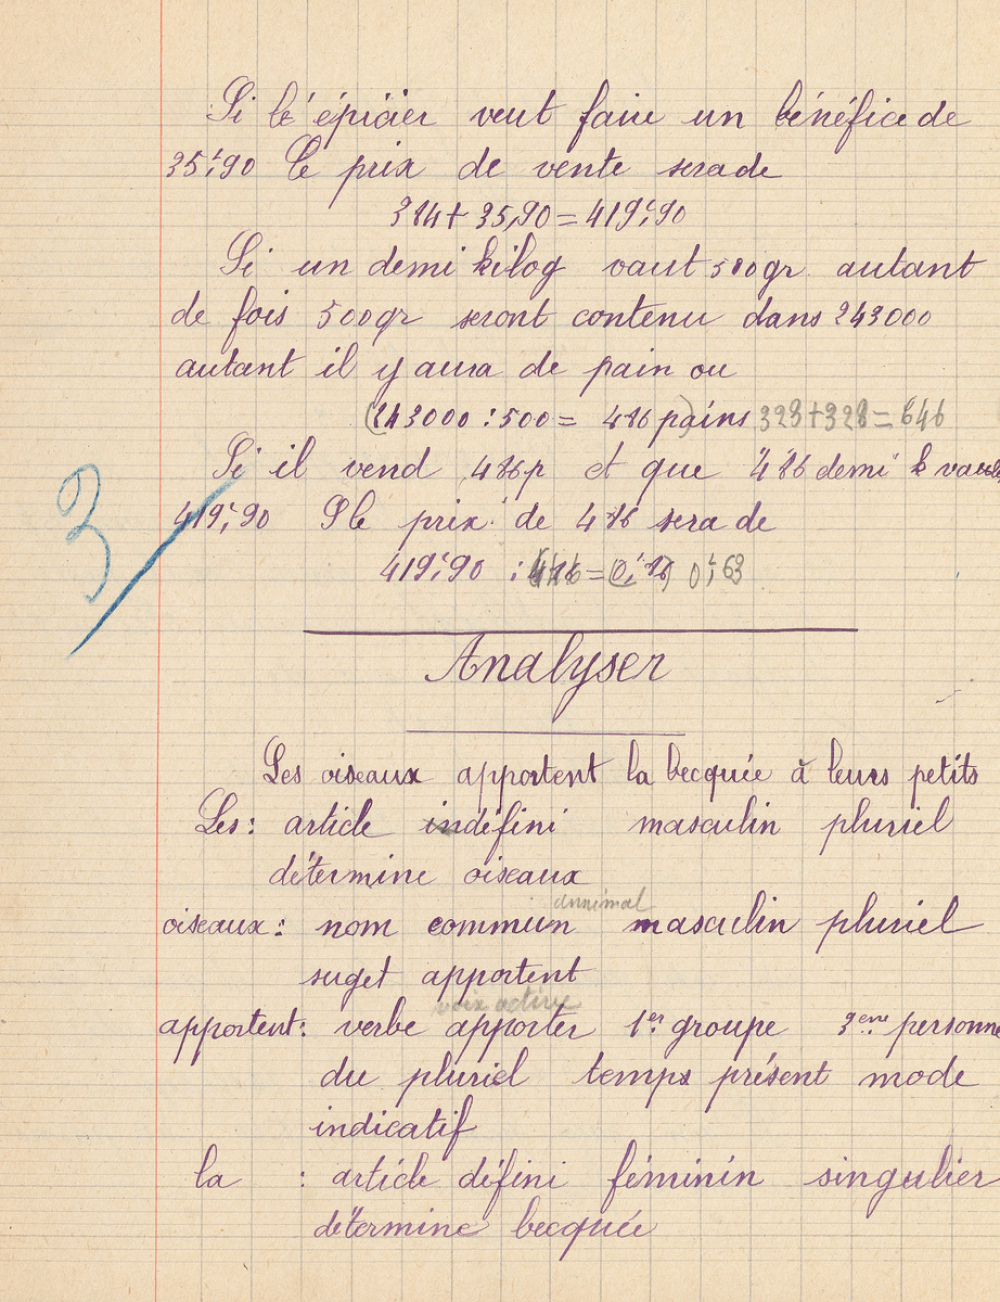 Si lé épicier veut faire un bénéfice de
35f,90 Le prix de vente sera de
384 + 35,90 = 419f,90
Si un demi kilog vaut 500gr autant
de fois 500gr seront contenu dans 243000
autant il y aura de pain ou
(243000 : 500 = 486 p)ains 323+323=646
Si il vend 486p et que 486 demi k vau
419f,90 Le prix de 486 sera de
419f,90 : = (0f,86) 0f,63
3
Analyser
Les oiseaux apportent la becquée à leurs petits
Les : article indéfini masculin pluriel
détermine oiseaux
annimal
oiseaux : nom commun masculin pluriel
suget apportent
voix active
apportent : verbe apporter 1er groupe 3eme personne
du pluriel temps présent mode
indicatif
la : article défini féminin singulier
détermine becquée